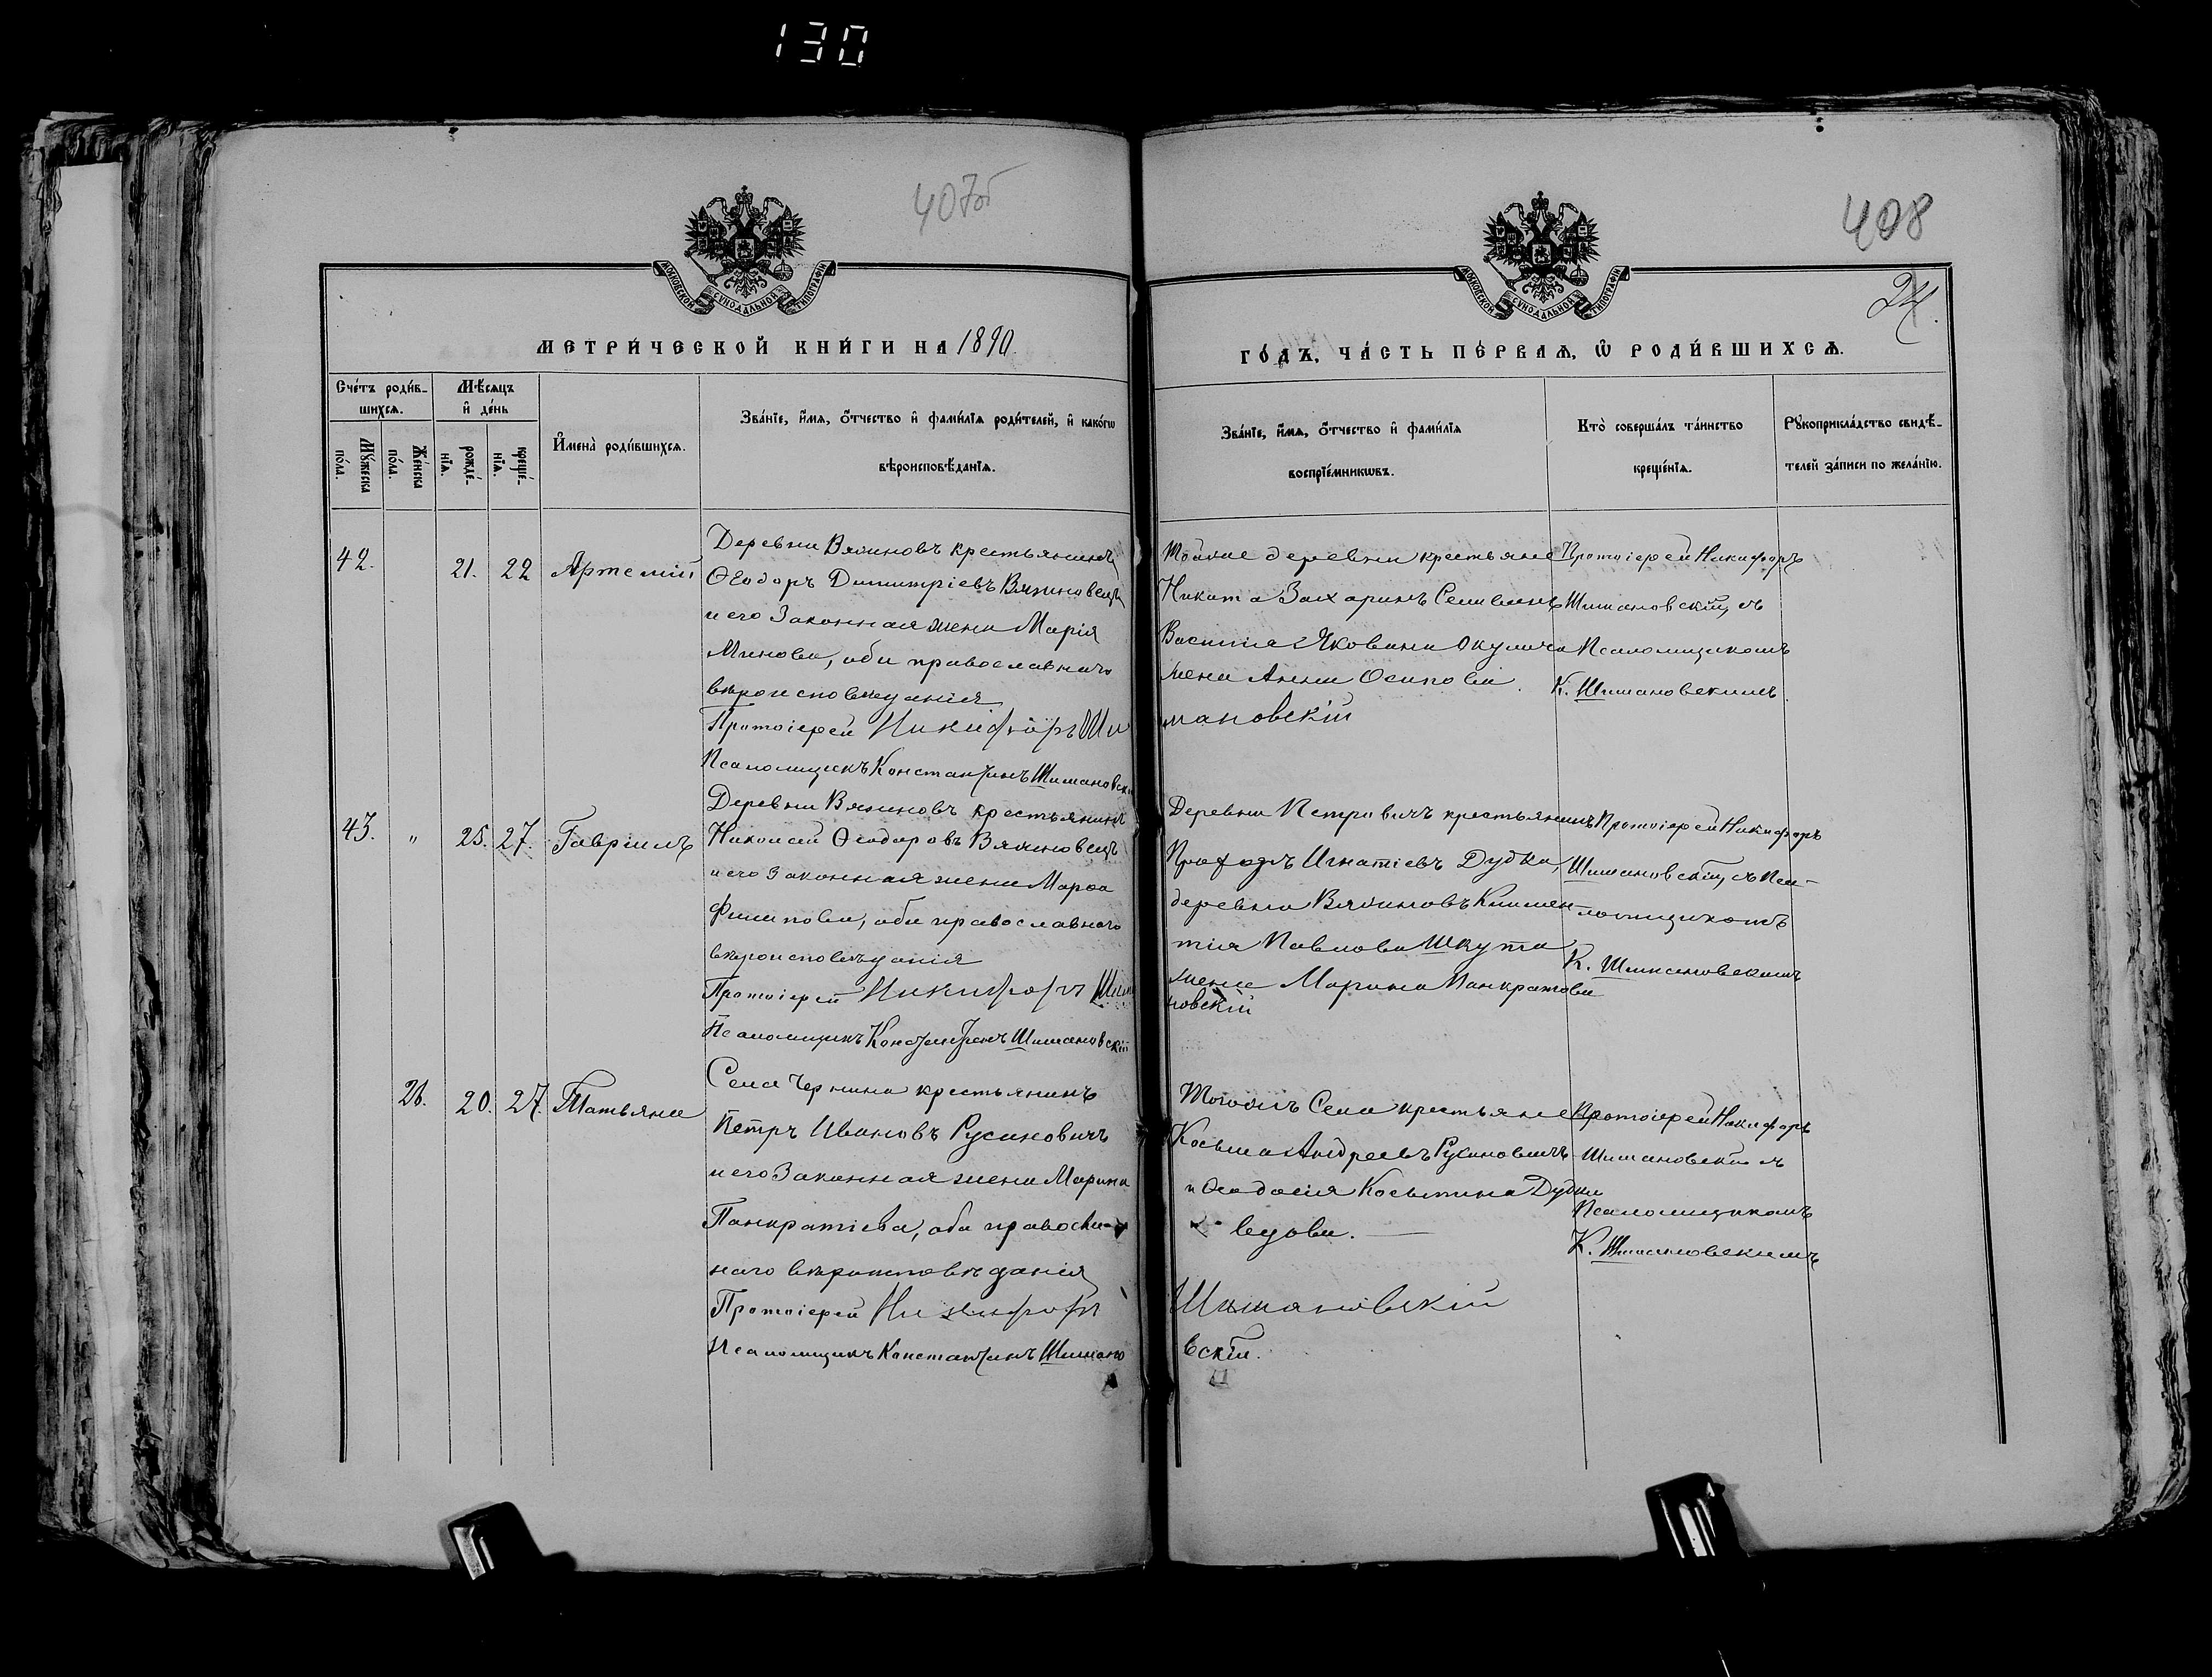 130
407об
408
24.
МОСКОВСКОЙ СѴНОДАЛЬНОЙ ТИПОГРАФІИ
МОСКОВСКОЙ СѴНОДАЛЬНОЙ ТИПОГРАФІИ
МЕТРИ́ЧЕСКОЙ КНИ́ГИ НА 1890.
ГО́ДЪ, ЧА́СТЬ ПЕ́РВАѦ, Ѽ РОДИ́ВШИХСѦ.
Сче́тъ роди́в-
шихсѧ.
Мꙋ́жеска
по́ла.
Же́нска
по́ла.
Мѣ́сѧцъ
и҆ де́нь
рожде́-
нїѧ.
креще́-
нїѧ.
И҆мена̀ роди́вшихсѧ.
Зва́нїе, и҆́мѧ, ѻ҆́тчество и҆ фами́лїѧ роди́телей, и҆ како́гѡ
вѣроисповѣ́данїѧ.
Зва́нїе, и҆́мѧ, ѻ҆́тчество и҆ фами́лїѧ
воспрїе́мникѡвъ.
Кто̀ соверша́лъ та́инство
креще́нїѧ.
Рꙋкоприкла́дство свидѣ́-
телей за́писи по жела́нїю.
42.
21. 22
Артемій
Деревни Вячиновъ крестьянинъ
Ѳеодоръ Димитріевъ Вячиновецъ
и его законная жена Марія
Минова, оба православнаго
вѣроисповѣданія
Протоіерей Никифоръ Ши
Псаломщикъ Константинъ Шимановскій
Тойже деревни крестьяне
Никита Захаринъ
Василія Яковина Окулича
жена Анна Осипова.
мановскій
Протоіерей Никифоръ
Шимановскій, съ
Псаломщикомъ
К. Шимановскимъ.
43. " 25. 27.
Гавріилъ
Деревни Вячиновъ крестьянинъ
Николай Ѳеодоровъ Вячиновецъ
и его законная жена Марѳа
Филипова, оба православнаго
вѣроисповѣданія
Протоіерей Никифоръ Шима
Псаломщикъ Константинъ Шимановскій
Деревни Петровичъ крестьянинъ
Игнатіевъ Дудка,
деревни Вячиновъ Климен-
тія Павлова Шкута
жена Марина Панкратова
новскій
Протоіерей Никифоръ
Шимановскій, съ Пса-
ломщикомъ
К. Шимановскимъ
26. 20. 27.
Татьяна
Села Чернина крестьянинъ
Петръ Ивановъ Русиновичъ
и его законная жена Марина
Панкратіева, оба православ-
наго вѣроисповѣданія
Протоіерей Никифоръ
Псаломщикъ Константинъ Шимано
Тогожъ Села крестьяне
Косьма Андреевъ Русиновичъ
и Ѳеодосія Косьмина Дудка
вдова.
Шимановскій
вскій.
Протоіерей Никифоръ
Шимановскій съ
Псаломщикомъ
К. Шимановскимъ